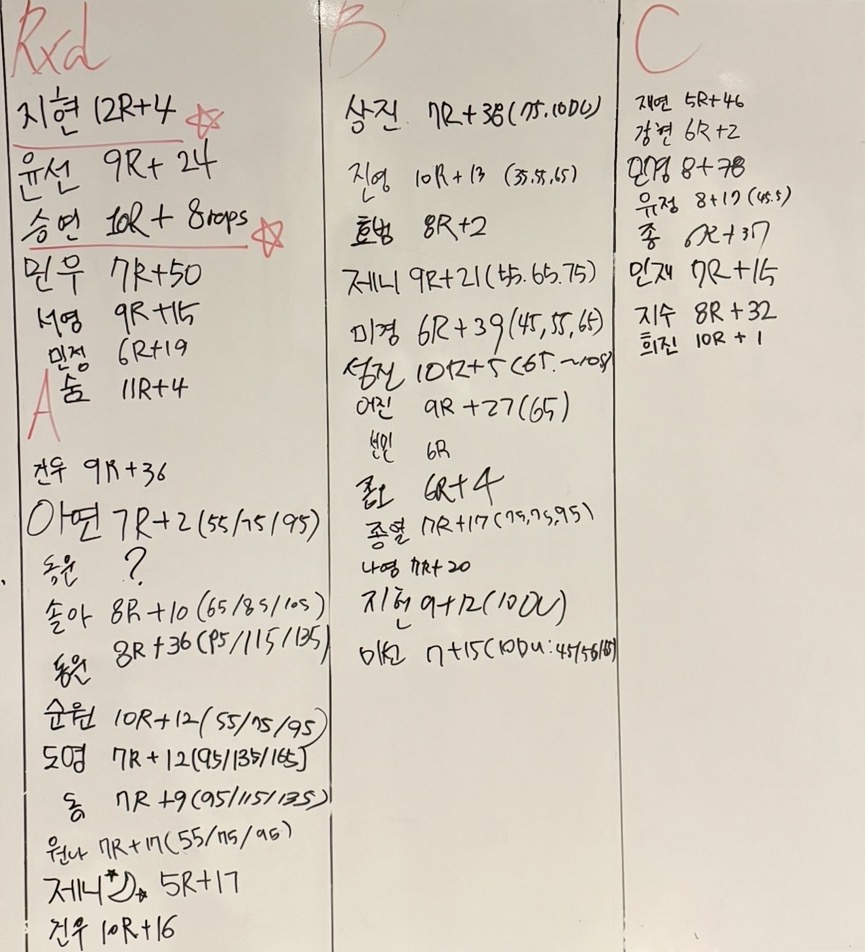 Rxd
지현 12R+4
윤선 9R+24
승연 10R+8rops
민우 7R+50
서영 9R+15
민정 6R+19
숨 11R+4
A
건우 9R+36
아연 7R+2(55/75/95)
동운 ?
솔아 8R+10(65/85/105)
동원 8R+36(95/115/135)
순원 10R+12(55/75/95)
도영 7R+12(95/135/165)
동 7R+9(95/115/135)
원나 7R+17(55/75/95)
제니 5R+17
건우 10R+16
B
상진 7R+38(75.10DU)
진영 10R+13 (35.55,65)
효범 8R+2
제니 9R+21(55.65.75)
미경 6R+39(45,55,65)
성진 10R+5(65.~105)
어진 9R+27(65)
6R
6R+4
종열 7R+17(75,75,95)
나영 7R+20
지현 9+12(10DU)
미선 7+15(10DU:45/55/65)
C
재연 5R+46
강현 6R+2
민경 8+78
유정 8+17(45.5)
종 6R+37
민재 7R+15
지수 8R+32
희진 10R+1